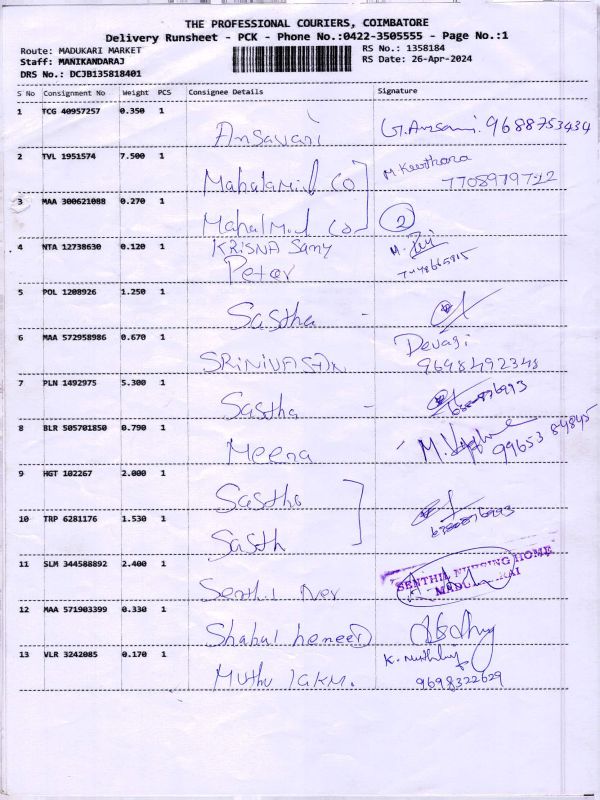 THE PROFESSIONAL COURIERS, COIMBATORE
Delivery Runsheet - PCK - Phone No.:0422-3505555 - Page No.:1
Route: MADUKARI MARKET RS No.: 1358184
Staff: MANIKANDARAJ RS Date: 26-Apr-2024
DRS No.: DCJB135818401
S No Consignment No Weight PCS Consignee Details Signature
1 TCG 40957257 0.350 1
Ansavari 9688753434
2 TVL 1951574 7.500 1 M Keerthana
Mahalamil Co 7708979712
3 MAA 300621088 0.270 1
Mahalmil Co 2
4 NTA 12738630 0.120 1 KRISNA Samy
Peter
5 POL 1208926 1.250 1
Sastha
6 MAA 572958986 0.670 1 Devagi
SRINIVASAN 9698492348
7 PLN 1492975 5.300 1
Sastha 6380876993
8 BLR 505701850 0.790 1
Meena 99653 84845
9 HGT 102267 2.000 1
Sastha
10 TRP 6281176 1.530 1 6380876993
Sasth
11 SLM 344588892 2.400 1 SENTHIL NURSING HOME
Senthil Ner
12 MAA 571903399 0.330 1
Shahul hameed
13 VLR 3242085 0.170 1
Muthu lakm. 9698322629